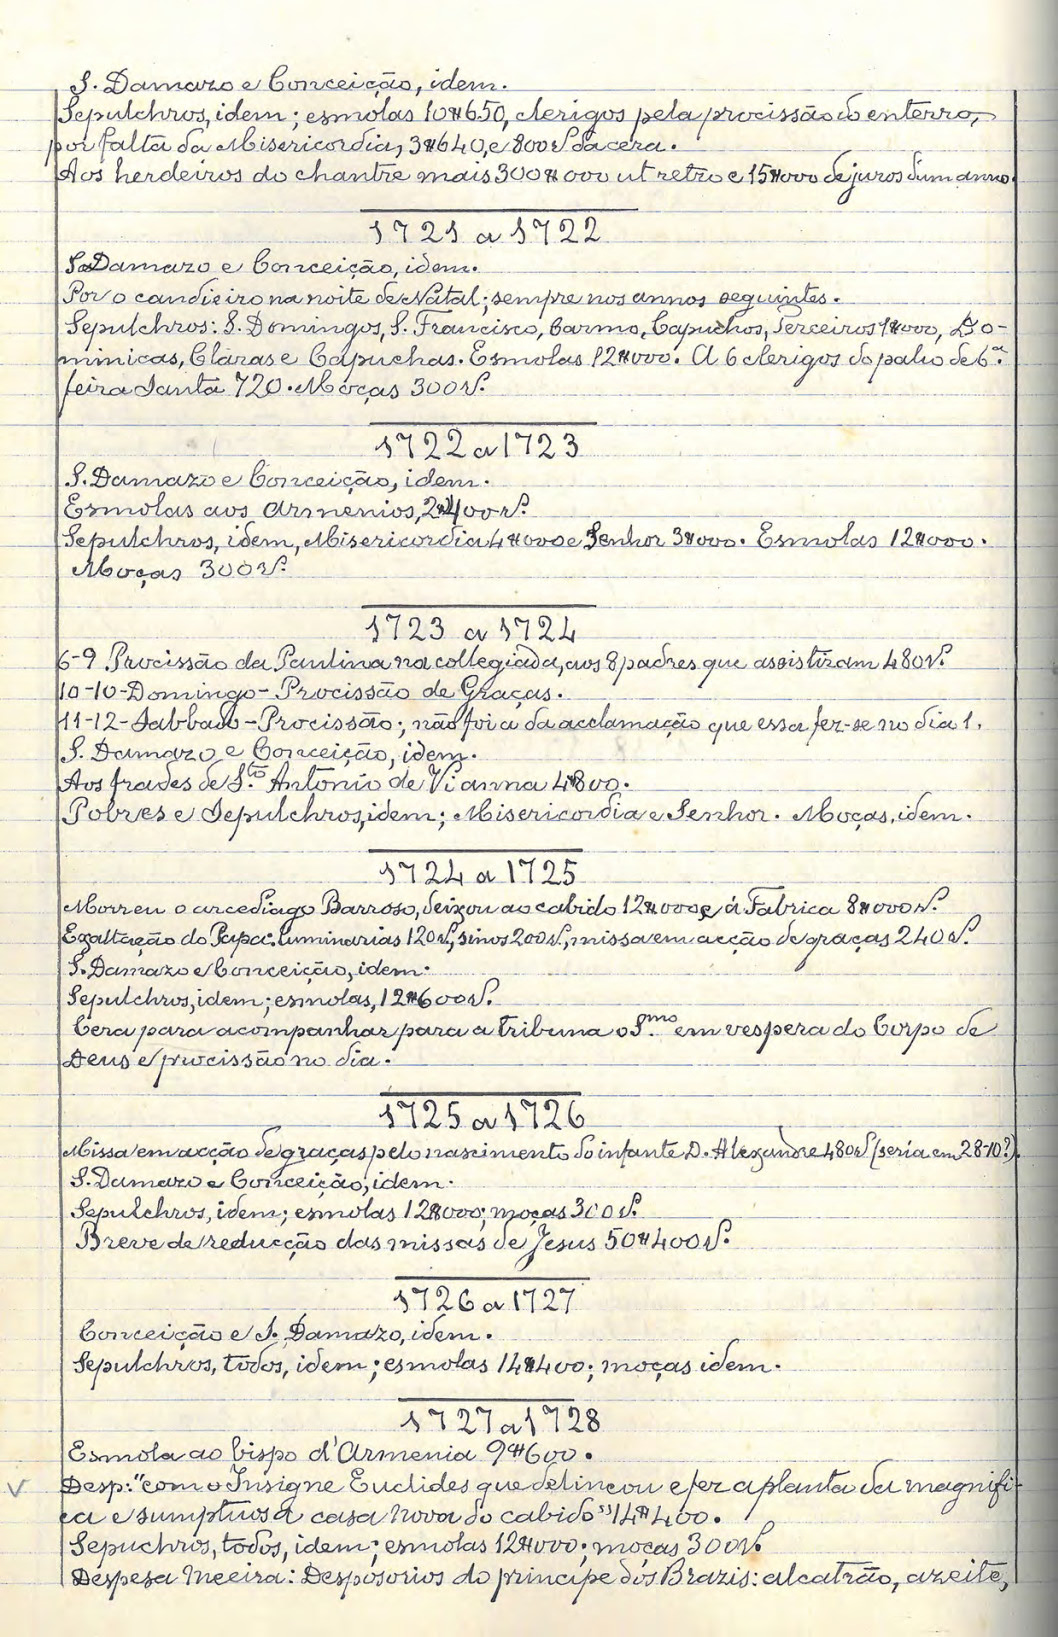 S. Damazo e Conceição, idem.
Sepulchros, idem; esmolas 10#650, clerigos pela procissão do enterro,
por falta da Misericordia, 3#640, e 800 rs. da cera.
Aos herdeiros do chantre mais 300#000 ut retro e 15#000 de juros dum anno.
1721 a 1722
S. Damazo e Conceição, idem.
Por o candieiro na noite de Natal; sempre nos annos seguintes.
Sepulchros: S. Domingos, S. Francisco, Carmo, Capuchos, Terceiros 1#000, Do-
minicas, Claras e Capuchas. Esmolas 12#000. A 6 clerigos do palio de 6.ª
feira Santa 720. Moças 300 rs.
1722 a 1723
S. Damazo e Conceição, idem.
Esmolas aos Armenios, 2#400 rs.
Sepulchros, idem, Misericordia 4#000 e Senhor 3#000. Esmolas 12#000.
Moças 300 rs.
1723 a 1724
6-9 Procissão da Paulina na collegiada, aos 8 padres que assistiram 480 rs.
10-10-Domingo-Procissão de Graças.
11-12-Sabbado-Procissão; não foi a da acclamação que essa fez-se no dia 1.
S. Damazo e Conceição, idem.
Aos frades de S.to Antonio de Vianna 4#800.
Pobres e Sepulchros, idem; Misericordia e Senhor. Moças, idem.
1724 a 1725
Morreu o arcediago Barroso, deixou ao cabido 12#000 e á Fabrica 8#000 rs.
Exaltação do Papa: luminarias 120 rs, sinos 200 rs, missa em acção de graças 240 rs.
S. Damazo e Conceição, idem.
Sepulchros, idem; esmolas, 12#600 rs.
Cera para acompanhar para a tribuna o S.mo em vespera do Corpo de
Deus e procissão no dia.
1725 a 1726
Missa em acção de graças pelo nascimento do infante D. Alexandre 480 rs (seria em 28-10?).
S. Damazo e Conceição, idem.
Sepulchros, idem; esmolas 12#000; moças 300 rs.
Breve de reducção das missas de Jesus 50#400 rs.
1726 a 1727
Conceição e S. Damazo, idem.
Sepulchros, todos, idem; esmolas 14#400; moças idem.
1727 a 1728
Esmola ao bispo d'Armenia 9#600.
Desp: "com o Insigne Euclides que delineou e fez a planta da magnifi-
ca e sumptuosa casa nova do cabido" 14#400.
Sepuchros, todos, idem; esmolas 12#000; moças 300 rs.
Despesa meeira: Desposorios do principe dos Brazis: alcatrão, azeite,